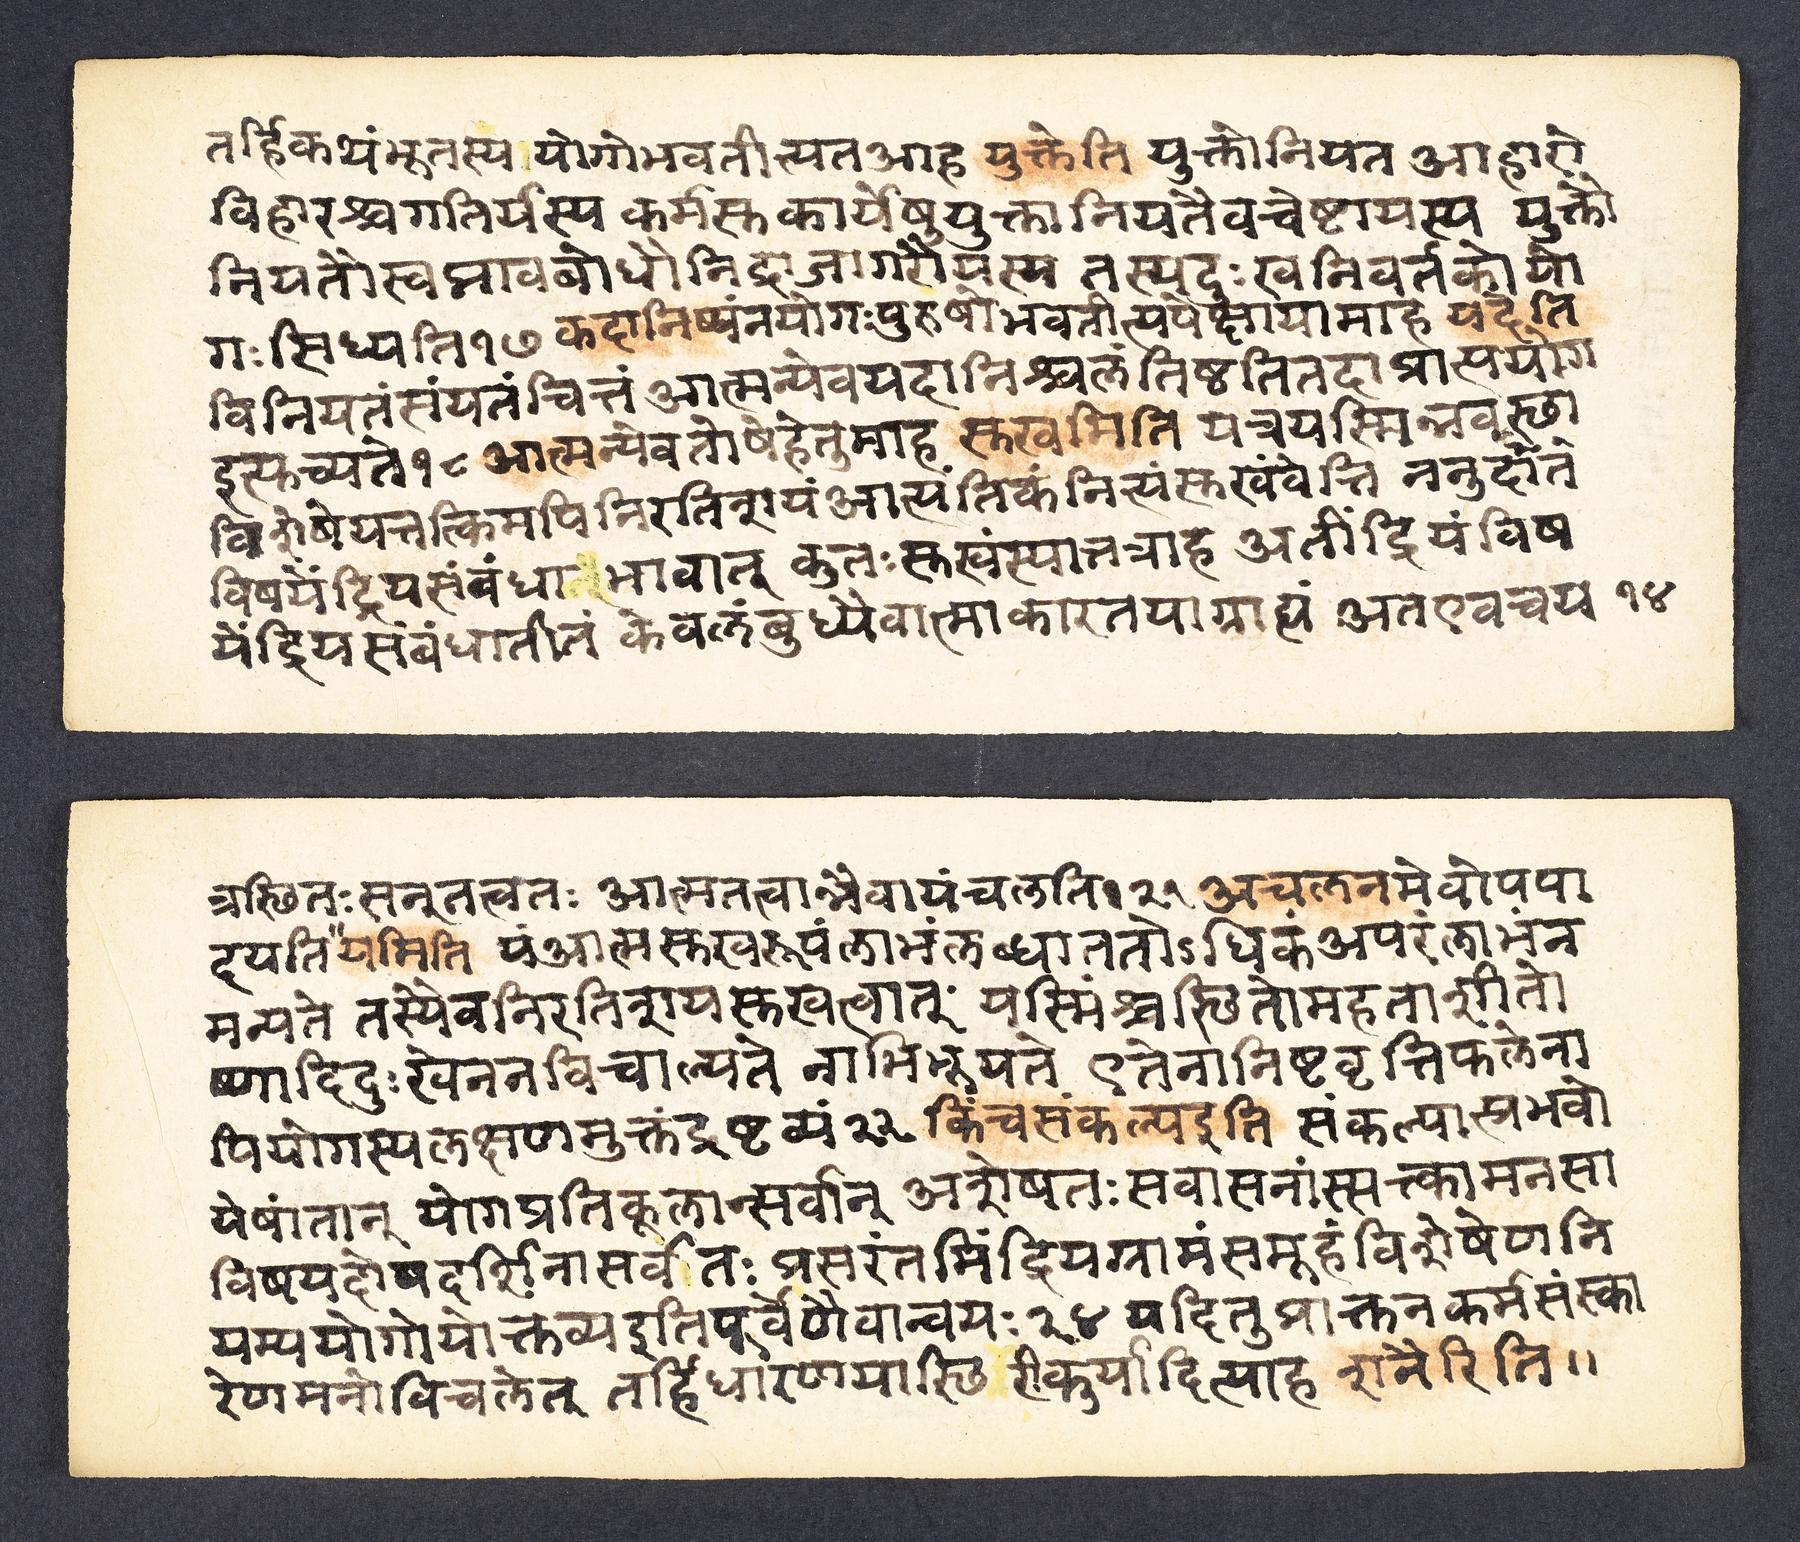 तर्हिकथंभूतस्य योगोभवतीत्यतआह युक्तेति युक्तोनियत आहारो
विहारश्चगतिर्यस्य कर्मस्तकार्येषुयुक्तानियतैवचेष्टायस्य युक्तौ
नियतौस्वप्नावबोधौनिद्राजागरौयस्य तस्यदुःखनिवर्तकोयो
गःसिध्यति१७ कदानिष्पंनयोगःपुरुषोभवतीत्यपेक्षायामाह यदेति
विनियतंसंयतंचित्तंआत्मन्येवयदानिश्चलंतिष्ठतितदाप्राप्ययोग
इत्युच्यते१८ आत्मन्येवतोषेहेतुमाह सुखमिति यत्रयस्मिन्नवस्छा
विशेषेयत्तत्किमपिनिरतिशयंआत्यंतिकंनित्यंसुखंवेत्ति ननुदांते
विषयेंद्रियसंबंधाभावात् कुतःसुखंस्यात्तत्राह अतींद्रियंविष
येंद्रियसंबंधातीतं केवलंबुध्येवात्माकारतयाग्राह्यं अतएवचय १४
त्रस्छितःसन्तत्वतः आत्मतत्वान्नैवायंचलति।२१ अचलनमेवोपपा
दयति"यमिति यंआत्मसुखरूपंलाभंलब्धाततोऽधिकंअपरंलाभंन
मन्यते तस्यैवनिरतिशयसुखत्वात् यस्मिंश्चस्छितोमहताशीतो
ष्णादिदुःखेननविचाल्यते नाभिभूयते एतेनानिष्टवृत्तिफलेना
पियोगस्यलक्षणमुक्तंद्रष्टव्यं२२ किंचसंकल्पइति संकल्पात्प्रभवो
येषांतान् योगप्रतिकूलान्सर्वान् अशेषतःसवासनांस्त्यत्त्कामनसा
विषयदोषदर्शिनासर्वतः प्रसरंतमिंद्रियग्रामंसमूहंविशेषेणनि
यम्ययोगोयोक्तव्यइतिपूर्वेणैवान्वयः२४ यदितुप्राक्तनकर्मसंस्का
रेणमनोविचलेत् तर्हिधारणयास्छिरीकुर्यादित्याह शनैरिति॥